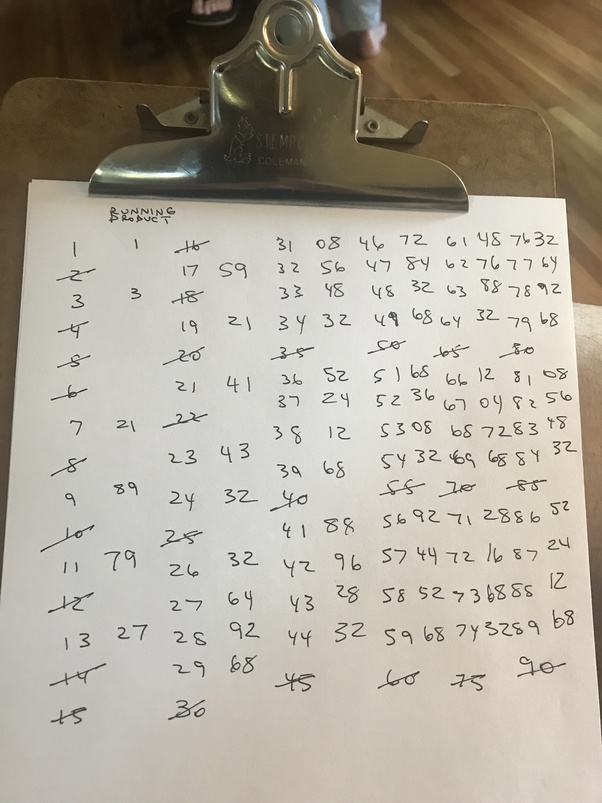 STEMPCO
COLEMAN
RUNNING
PRODUCT
1 1 16 31 08 46 72 61 48 76 32
2 17 59 32 56 47 84 62 76 77 64
3 3 18 33 48 48 32 63 88 78 92
4 19 21 34 32 49 68 64 32 79 68
5 20 35 50 65 80
6 21 41 36 52 51 68 66 12 81 08
37 24 52 36 67 04 82 56
7 21 22 38 12 53 08 68 72 83 48
8 23 43 39 68 54 32 69 68 84 32
9 89 24 32 40 55 70 85
10 25 41 88 56 92 71 28 86 52
11 79 26 32 42 96 57 44 72 16 87 24
12 27 64 43 28 58 52 73 68 88 12
13 27 28 92 44 32 59 68 74 32 89 68
14 29 68 45 60 75 90
15 30